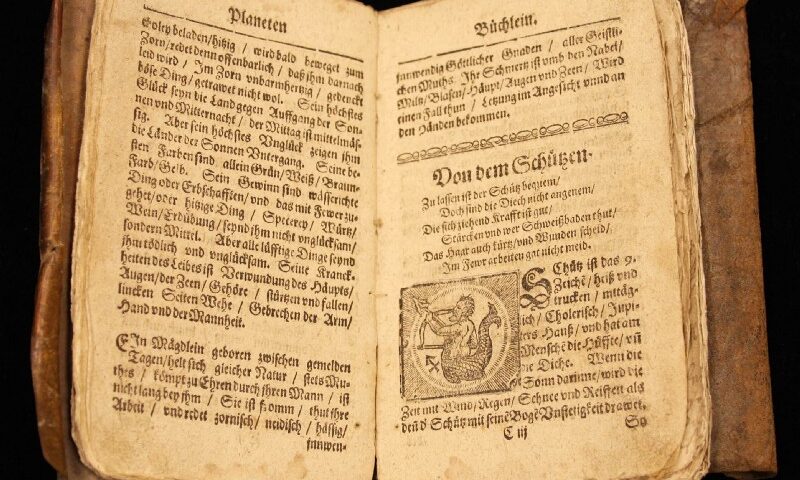 Planeten
Soley beladen/hitzig / wird bald beweget zum
Zorn/redet denn offenbarlich / daß ihm darnach
leid wird / Im Zorn unbarmhertzig / gedenckt
böse Ding/getrawet nicht wol. Sein höchstes
Glück seyn die Land gegen Auffgang der Son-
nen vnd Mitternacht / der Mittag ist mittelmäs-
sig. Aber sein höchstes Vnglück zeigen ihm
die Länder der Sonnen Vntergang. Seine be-
sten Farben sind allein Grün/Weiß/Braun-
Farb/Gelb. Sein Gewinn sind wässerichte
Ding oder Erbschafften/vnd das mit Fewer zu-
gehet/oder hitzige Ding / Specerey / Würtz/
Wein/Erdübung/seynd ihm nicht vnglücksam/
sondern Mittel. Aber alle lüfftige Dinge seynd
ihm tödlich vnd vnglücksam. Seine Kranck-
heiten des Leibes ist Verwundung des Häupts/
Augen/der Zeen/Gehöre / stürtzen vnd fallen/
lincken Seiten Wehe / Gebrechen der Arm/
Hand vnd der Mannheit.
EIn Mägdlein geboren zwischen gemelden
Tagen/helt sich gleicher Natur / stets Mu-
thes / kömpt zu Ehren durch ihren Mann / ist
nicht lang bey ihm / Sie ist fromm / thut ihre
Arbeit / vnd redet zornisch/ neidisch / hässig/
innwen-
Büchlein.
innwendig Göttlicher Gnaden / aller Geistli-
chen Muths. Ihr Schmertz ist vmb den Nabel/
Miltz/Blasen/Häupt/Augen vnd Zeen/ Wird
einen Fall thun / Letzung im Angesicht vnnd an
den Händen bekommen.
Von dem Schützen.
Zu lassen ist der Schütz bequem/
Doch sind die Diech nicht angenem/
Die sich ziehend Krafft ist gut/
Stärcken vnd wer Schweißbaden thut/
Das Haar auch kürtz/vnd Wunden scheid/
Im Fewr arbeiten gar nicht meid.
SChütz ist das 9.
Zeichē/ heiß vnd
trucken / mittäg-
lich/ Cholerisch/ Jupi-
ters Hauß/ vnd hat am
Menschē die Hüffte/ vñ
die Diche. Wenn die
Sonn darinne/wird die
Zeit mit Wind/Regen/ Schnee vnd Reiffen als
deñ d' Schütz mit seinē Bogē Vnstetigkeit drawet.
C iij
So